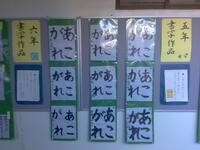 五年
書写作品
あこ
がれ
あこ
がれ
あこ
がれ
あこ
がれ
あこ
がれ
あこ
がれ
あこ
がれ
あこ
がれ
あこ
がれ
六年
書写作品